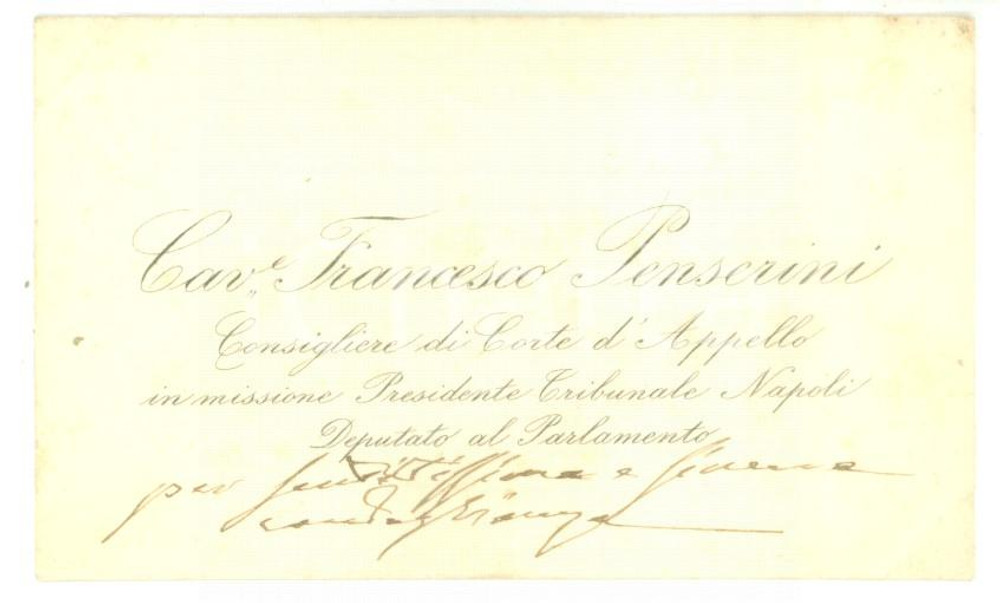 Cav.e Francesco Penserini
Consigliere di Corte d'Appello
in missione Presidente Tribunale Napoli
Deputato al Parlamento
per sentitissime e sincere
condoglianze